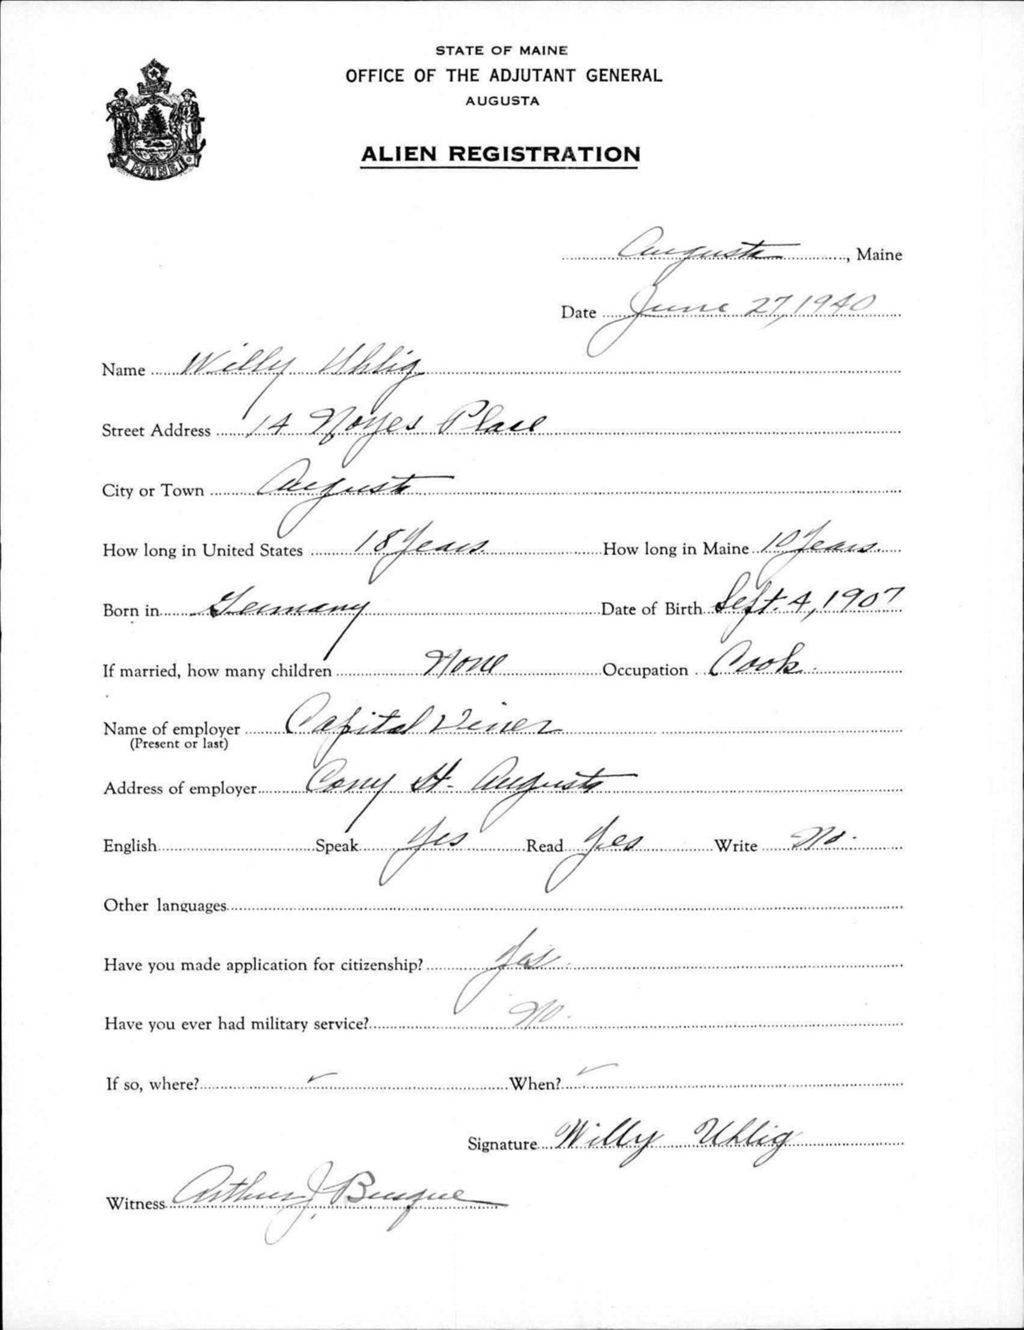 STATE OF MAINE
OFFICE OF THE ADJUTANT GENERAL
AUGUSTA
ALIEN REGISTRATION
MAINE
Augusta, Maine
Date June 27, 1940
Name Willy Uhlig
Street Address 14 Noyes Place
City or Town Augusta
How long in United States 18 Years How long in Maine 10 Years
Born in Germany Date of Birth Sept. 4, 1907
If married, how many children None Occupation Cook
Name of employer Capital
(Present or last)
Address of employer Cony St. Augusta
English Speak Yes Read Yes Write No.
Other languages
Have you made application for citizenship? Yes
Have you ever had military service? No.
If so, where? ✓ When? ✓
Signature Willy Uhlig
Witness Arthur J.